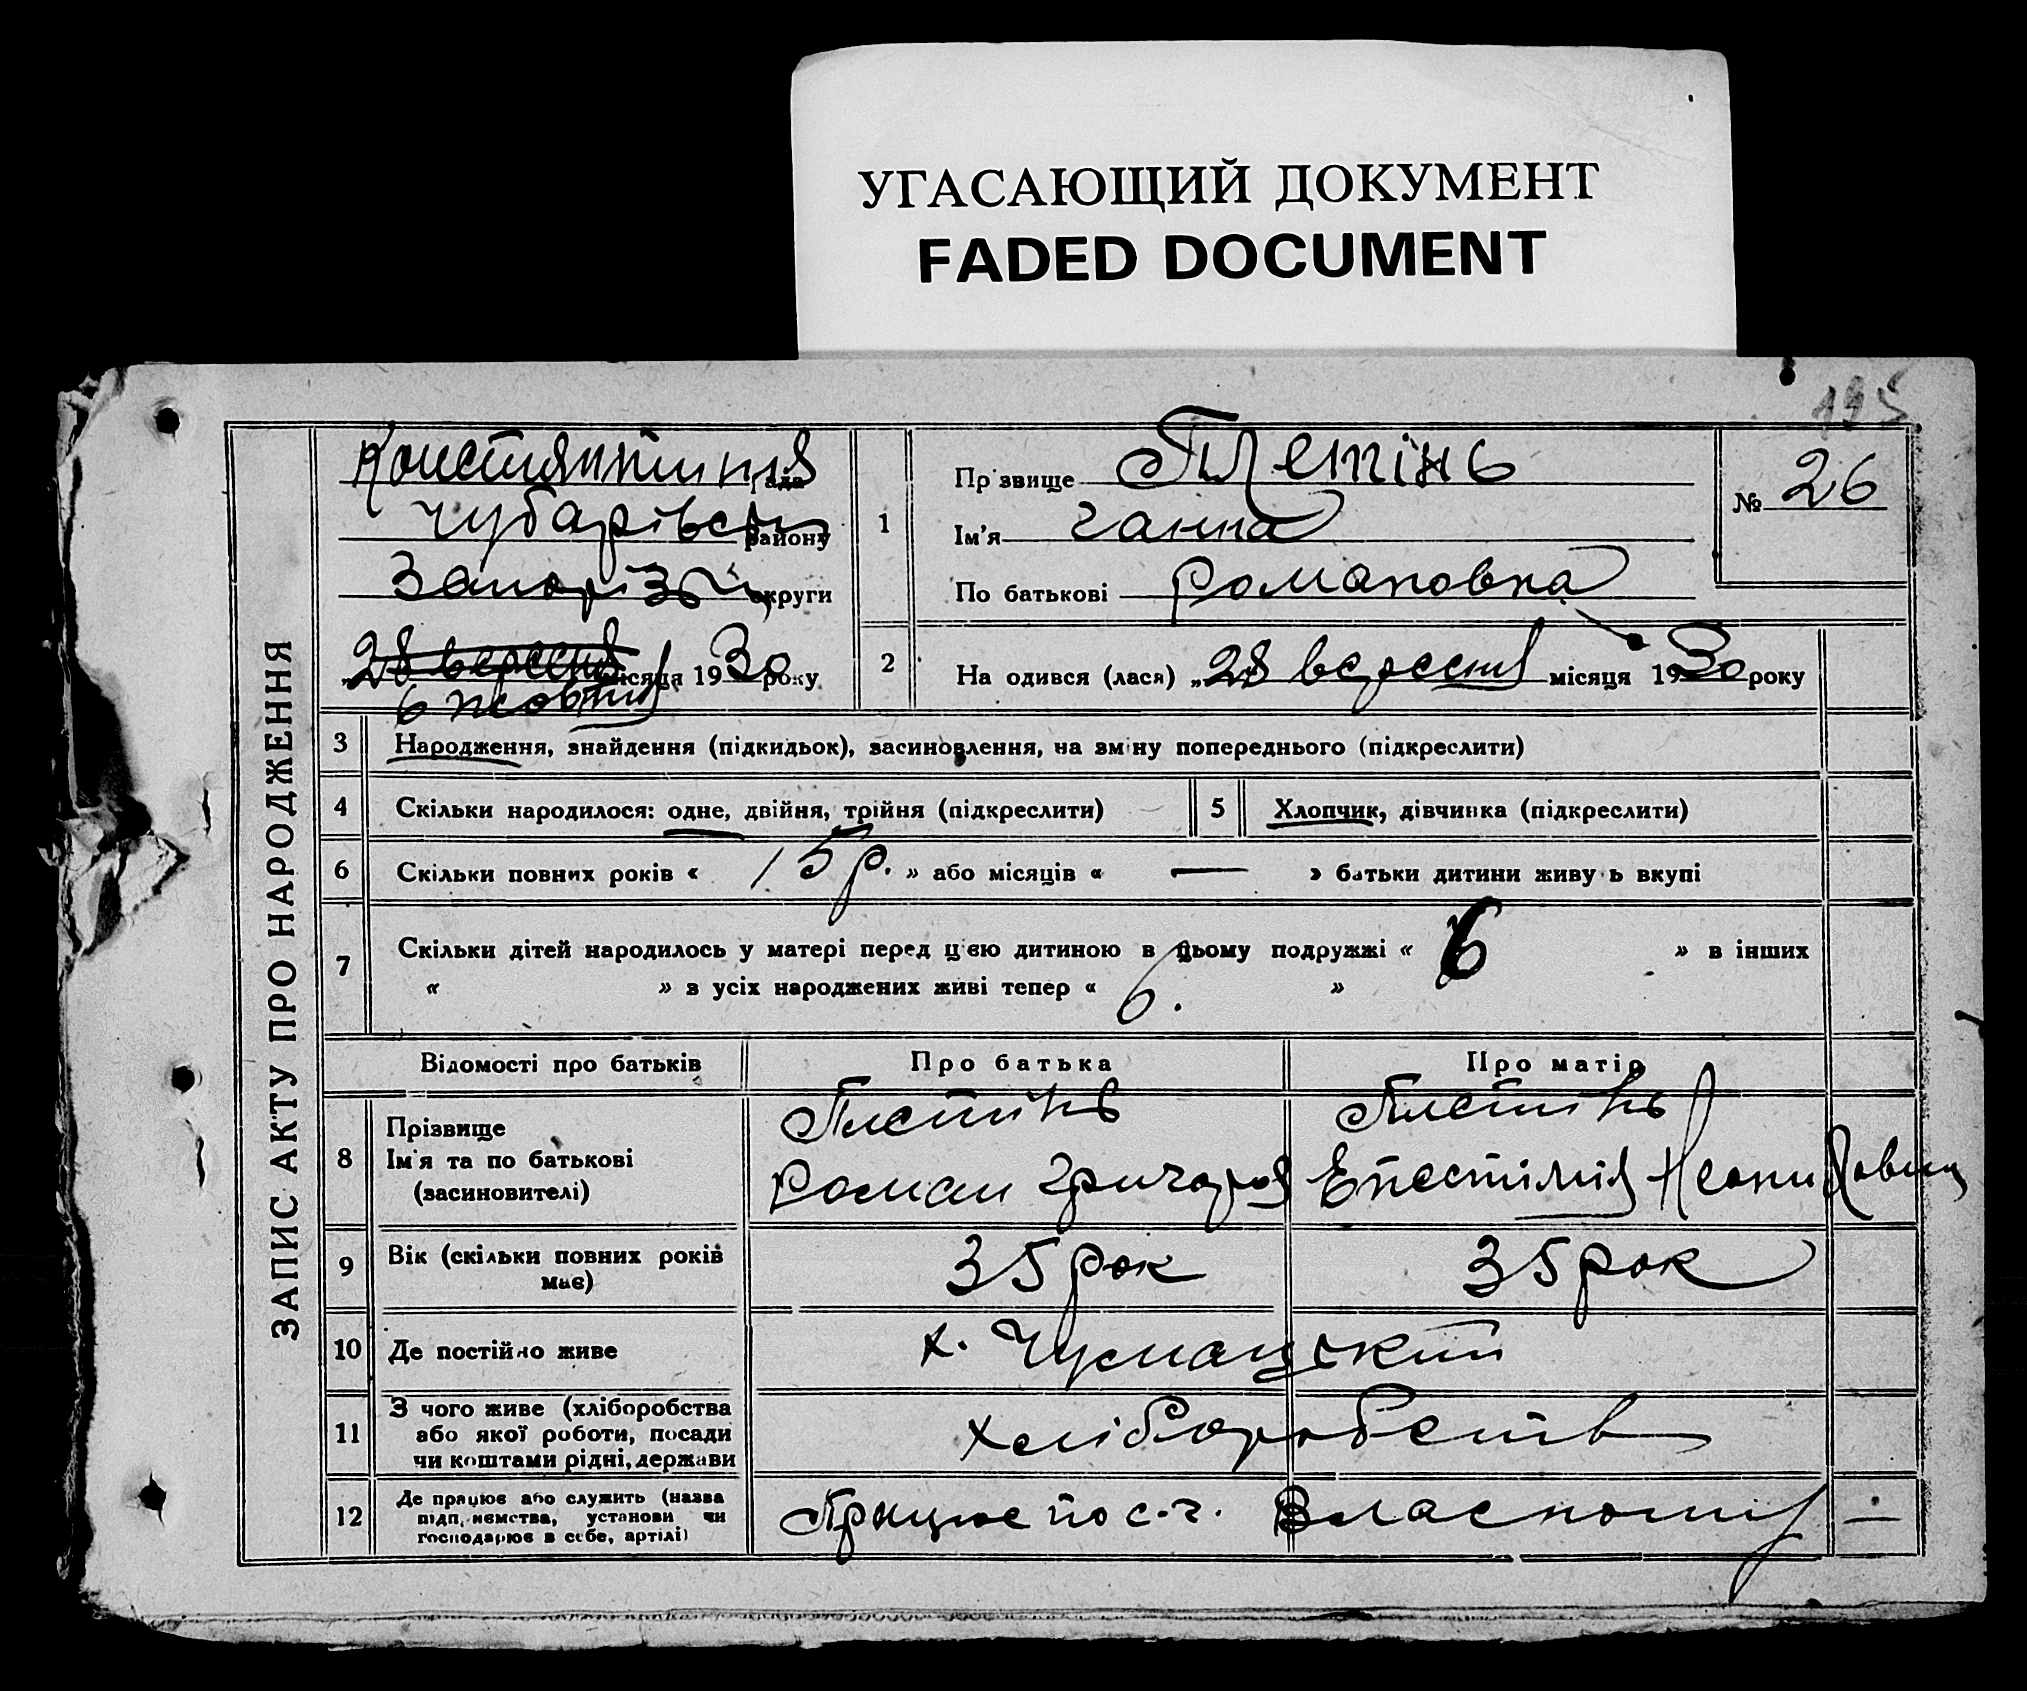 УГАСАЮЩИЙ ДОКУМЕНТ
FADED DOCUMENT
195
ЗАПИС АКТУ ПРО НАРОДЖЕННЯ
рада
Чубарівськ району
Запорізьк округи
28 вересня місяця 1930 року
6 жовтня
1
Прізвище Плетінь
Ім'я Ганна
По батькові Романовна
№ 26
2 На одився (лася) „28 вересня місяця 1930 року
3 Народження, знайдення (підкидьок), засиновлення, на зміну попереднього (підкреслити)
4 Скільки народилося: одне, двійня, трійня (підкреслити)
5 Хлопчик, дівчинка (підкреслити)
6 Скільки повних років « 15 р. » або місяців « — » батьки дитини живуть вкупі
7 Скільки дітей народилось у матері перед цією дитиною в цьому подружжі « 6 » в інших
« » в усіх народжених живі тепер « 6. »
Відомості про батьків Про батька Про матір
8 Прізвище
Ім'я та по батькові
(засиновителі)
Плетінь
Роман Григоров
Плетінь
Епестімія
9 Вік (скільки повних років
має)
35 рок
35 рок
10 Де постійно живе
х. Чумацький
11 З чого живе (хліборобства
або якої роботи, посади
чи коштами рідні, держави
хліборобств
12 Де працює або служить (назва
підприємства, установи чи
господарює в себе, артілі)
Працює по с.-г.
—